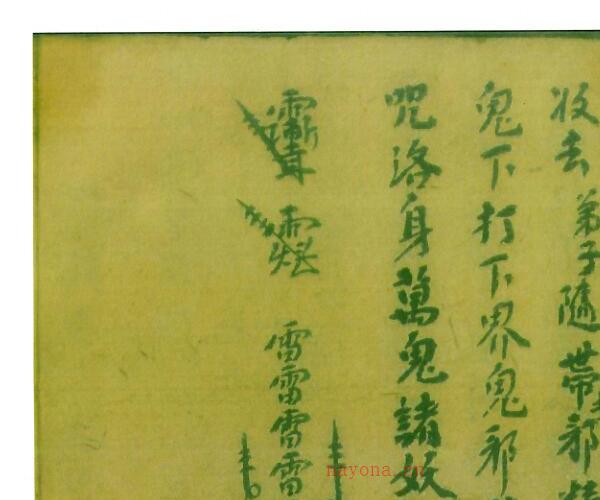 收去弟子隨帶邪
鬼下打下界鬼邪
咒洛身萬鬼諸妖
雷雷雷雷
nayona.cn